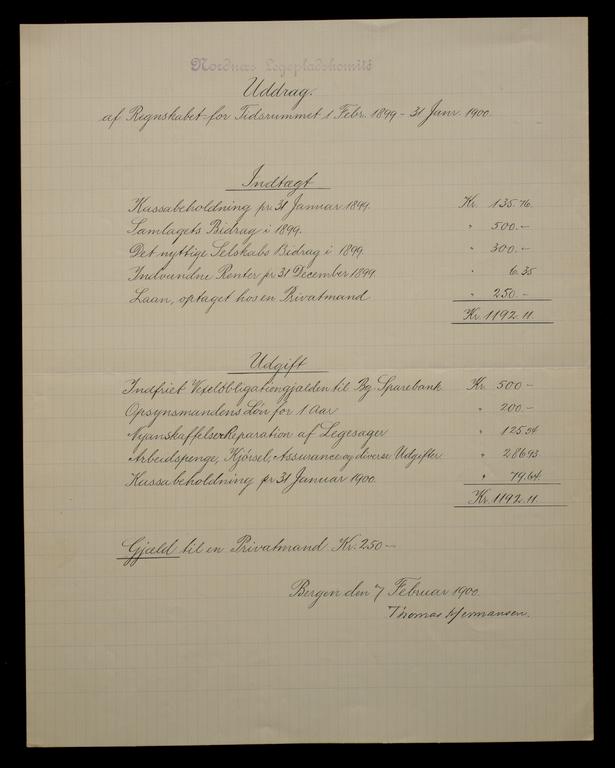 Nordnæs Legepladskomité
Uddrag.
af Regnskabet for Tidsrummet 1 Febr. 1899 - 31 Janr. 1900.
Indtægt
Kassabeholdning pr. 31 Januar 1899. Kr. 135.76.
Samlagets Bidrag i 1899. " 500.-
Det nyttige Selskabs Bidrag i 1899. " 300.-
Indvundne Renter pr 31 December 1899. " 6.35
Laan, optaget hos en Privatmand " 250.-
Kr. 1192.11.
Udgift
Indfriet Vexelobligationgjælden til Bg. Sparebank Kr. 500.-
Opsynsmandens Løn for 1 Aar " 200.-
Nyanskaffelse & Reparation af Legesager " 125.54
Arbeidspenge, Kjørsel, Assurance og diverse Udgifter " 286.93
Kassabeholdning pr 31 Januar 1900. " 79.64.
Kr. 1192.11.
Gjæld til en Privatmand Kr. 250-
Bergen den 7 Februar 1900.
Thomas Hermansen.